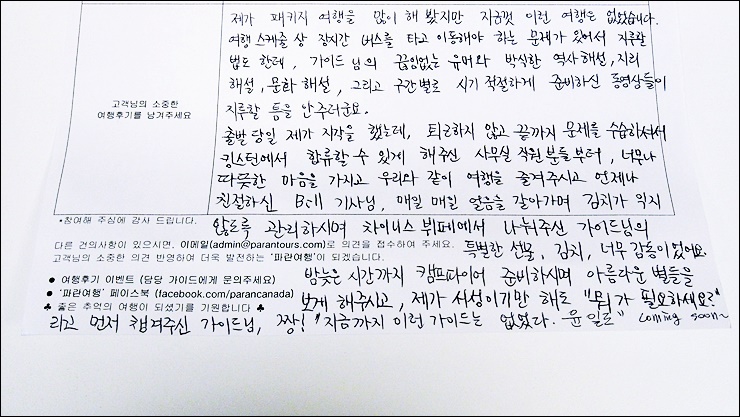 제가 패키지 여행을 많이 해 봤지만 지금껏 이런 여행은 없었습니다.
여행 스케줄 상 장시간 버스를 타고 이동해야 하는 문제가 있어서 지루할
법도 한데, 가이드님의 끊임없는 유머와 박식한 역사해설, 지리
해설, 문화해설, 그리고 구간별로 시기 적절하게 준비하신 동영상들이
지루할 틈을 안주더군요.
고객님의 소중한
여행후기를 남겨주세요
출발 당일 제가 지각을 했는데, 퇴근하지 않고 끝까지 문제를 수습하셔서
킹스턴에서 합류할 수 있게 해주신 사무실 직원분들부터, 너무나
따뜻한 마음을 가지고 우리와 같이 여행을 즐겨주시고 언제나
친절하신 Bell 기사님, 매일 매일 얼음을 갈아가며 김치가 익지
*참여해 주심에 감사 드립니다.
않도록 관리하시며 차이니스 뷔페에서 나눠주신 가이드님의
다른 건의사항이 있으시면, 이메일(admin@parantours.com)로 의견을 접수하여 주세요.
특별한 선물, 김치, 너무 감동이었어요.
고객님의 소중한 의견 반영하여 더욱 발전하는 '파란여행'이 되겠습니다.
밤늦은 시간까지 캠프파이어 준비하시며 아름다운 별들을
● 여행후기 이벤트 (담당 가이드에게 문의주세요)
● '파란여행' 페이스북 (facebook.com/parancanada)
보게 해주시고, 제가 서성이기만 해도 "뭐가 필요하세요?"
♣ 좋은 추억의 여행이 되셨기를 기원합니다 ♣
라고 먼저 챙겨주신 가이드님, 짱! "지금까지 이런 가이드는 없었다. 윤일로" coming soon~